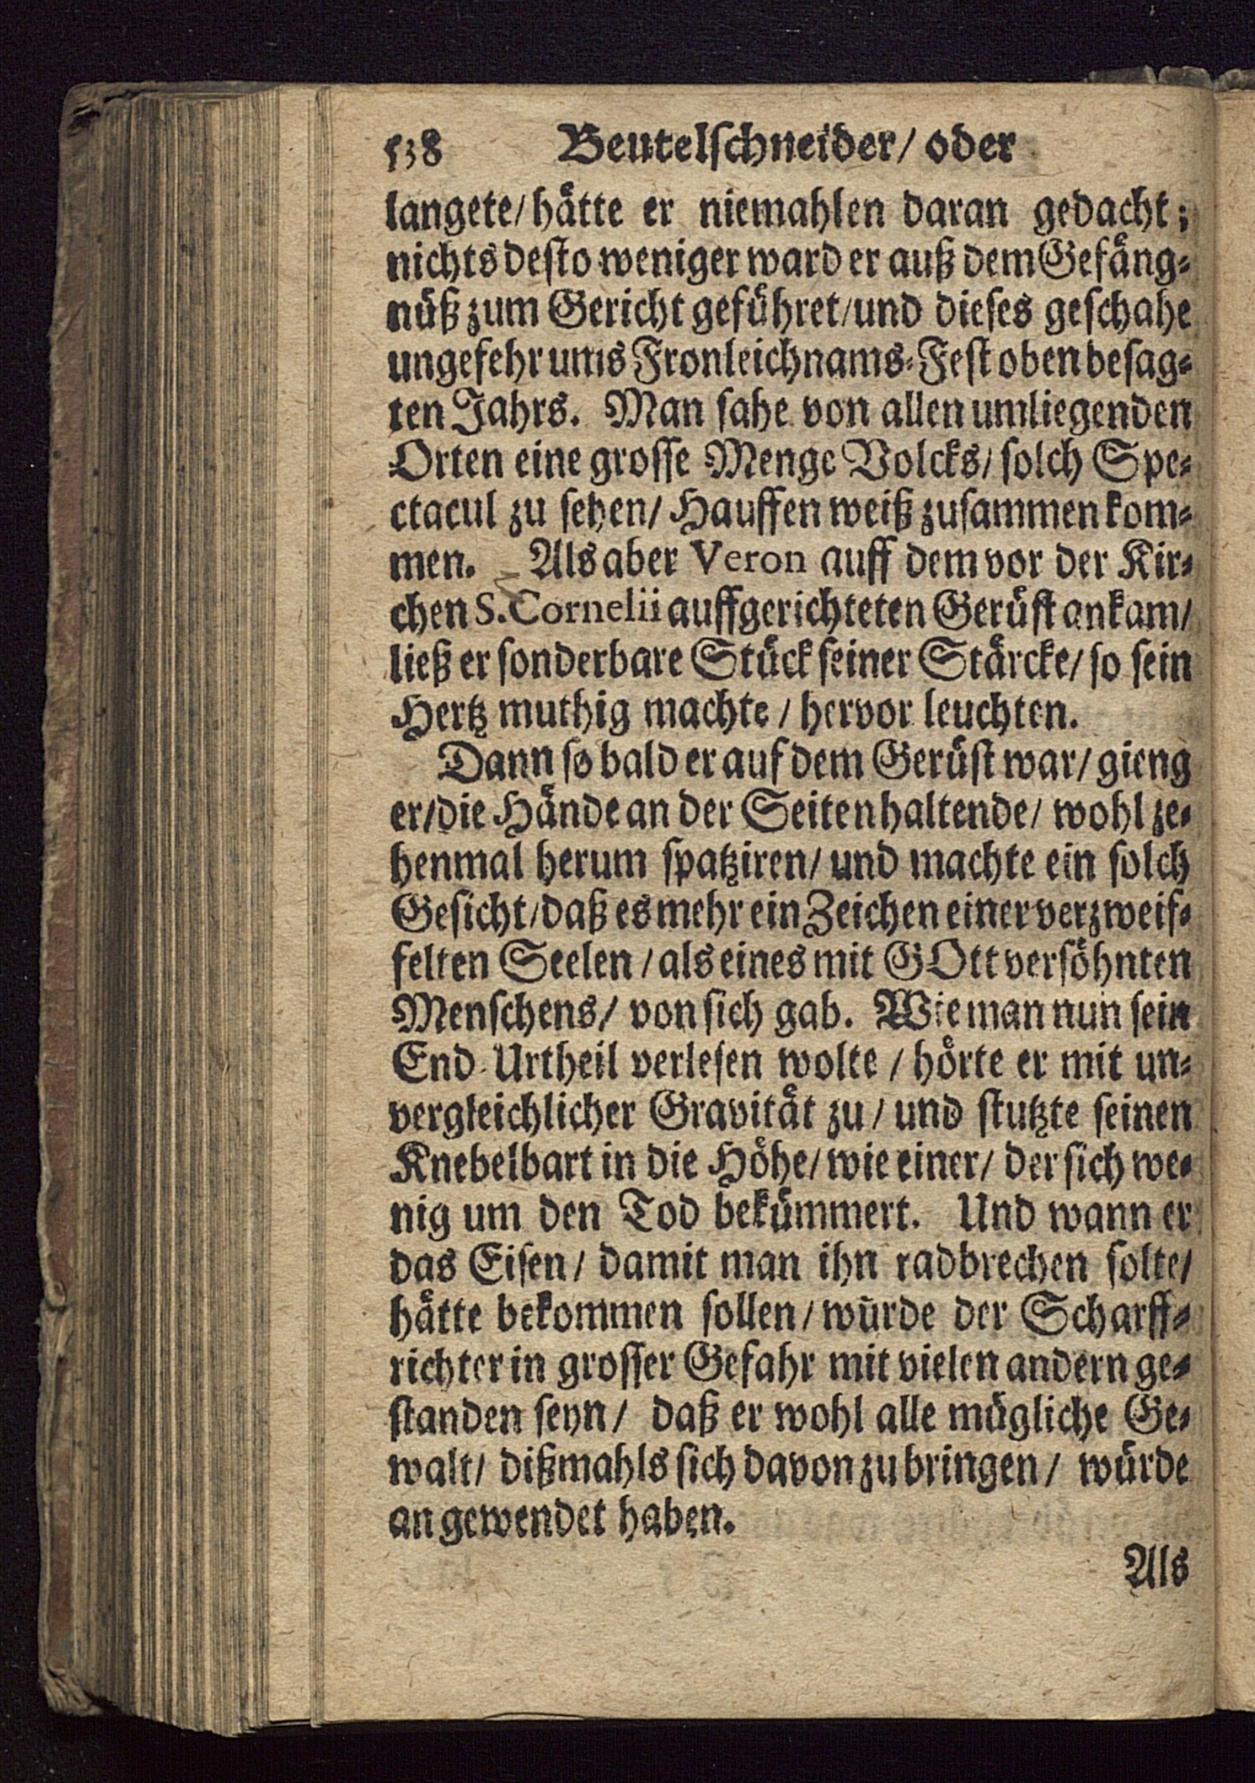 538 Beutelschneider/ oder
langete/ hätte er niemahlen daran gedacht;
nichts desto weniger ward er auß dem Gefäng-
nüß zum Gericht geführet/ und dieses geschahe
ungefehr ums Fronleichnams-Fest oben besag-
ten Jahrs. Man sahe von allen umliegenden
Orten eine grosse Menge Volcks/ solch Spe-
ctacul zu sehen/ Hauffen weiß zusammen kom-
men. Als aber Veron auff dem vor der Kir-
chen S. Cornelii auffgerichteten Gerüst ankam/
ließ er sonderbare Stück seiner Stärcke/ so sein
Hertz muthig machte / hervor leuchten.
Dann so bald er auf dem Gerüst war/ gieng
er/ die Hände an der Seiten haltende/ wohl ze-
henmal herum spatziren/ und machte ein solch
Gesicht/ daß es mehr ein Zeichen einer verzweif-
felten Seelen / als eines mit GOtt versöhnten
Menschens/ von sich gab. Wie man nun sein
End-Urtheil verlesen wolte / hörte er mit un-
vergleichlicher Gravität zu / und stutzte seinen
Knebelbart in die Höhe/ wie einer/ der sich we-
nig um den Tod bekümmert. Und wann er
das Eisen / damit man ihn radbrechen solte/
hätte bekommen sollen / würde der Scharff-
richter in grosser Gefahr mit vielen andern ge-
standen seyn / daß er wohl alle mügliche Ge-
walt/ dißmahls sich davon zu bringen / würde
angewendet haben.
Als